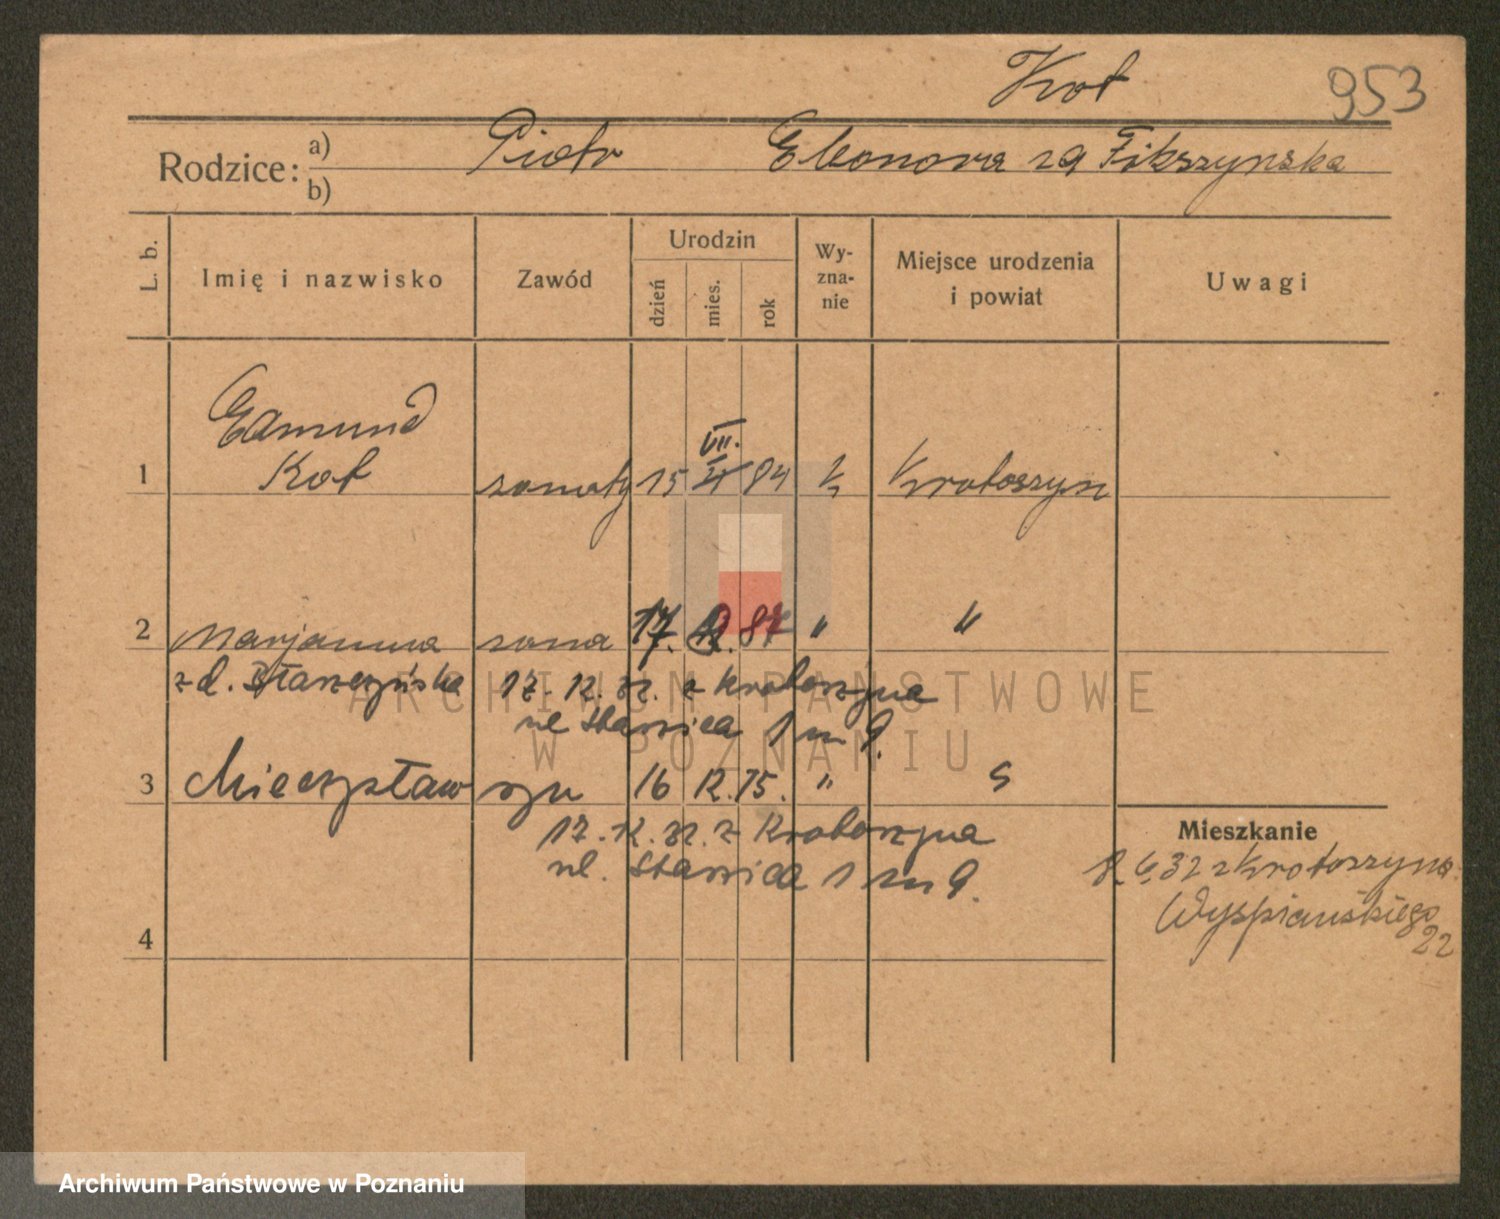 Kot 953
Rodzice: a) b) Piotr Eleonora zd Fikszynska
L. b. Imię i nazwisko Zawód Urodzin dzień mies. rok Wy-zna-nie Miejsce urodzenia i powiat Uwagi
Edmund
1 Kot żonaty 15 VII. 84 k Krotoszyn
2 Marjanna żona 17. 87 " "
zd.
17. 12. 32. z Krotoszyna
ul Staszica 1 m 9.
3 Mieczysław syn 16 12. 15. " "
17. 12. 32. z Krotoszyna
ul. Staszica 1 m 9.
Mieszkanie
32 z Krotoszyna
Wyspiańskiego
22
4
ARCHIWUM PAŃSTWOWE
W POZNANIU
Archiwum Państwowe w Poznaniu